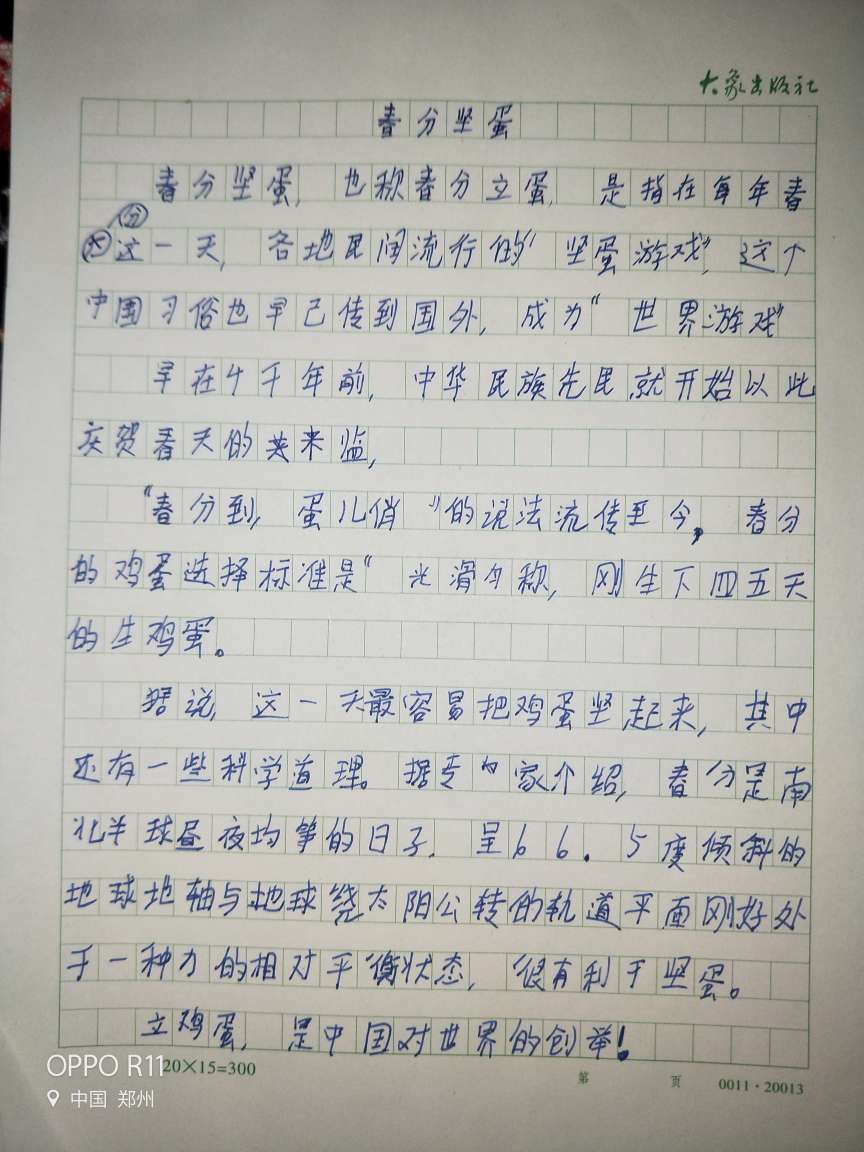 大象出版社
春分坚蛋
春分坚蛋，也称春分立蛋，是指在每年春
分
天这一天，各地民间流行的“坚蛋游戏”，这个
中国习俗也早已传到国外，成为“世界游戏”
早在4千年前，中华民族先民就开始以此
庆贺春天的来监，
“春分到，蛋儿俏”的说法流传至今，春分
的鸡蛋选择标准是“光滑匀称，刚生下四五天
的生鸡蛋。
据说，这一天最容易把鸡蛋坚起来，其中
还有一些科学道理。据专家介绍，春分是南
北半球昼夜均等的日子，呈66.5度倾斜的
地球地轴与地球绕太阳公转的轨道平面刚好处
于一种力的相对平衡状态，很有利于坚蛋。
立鸡蛋，是中国对世界的创举！
OPPO R11
20×15=300
第 页 0011·20013
中国 郑州